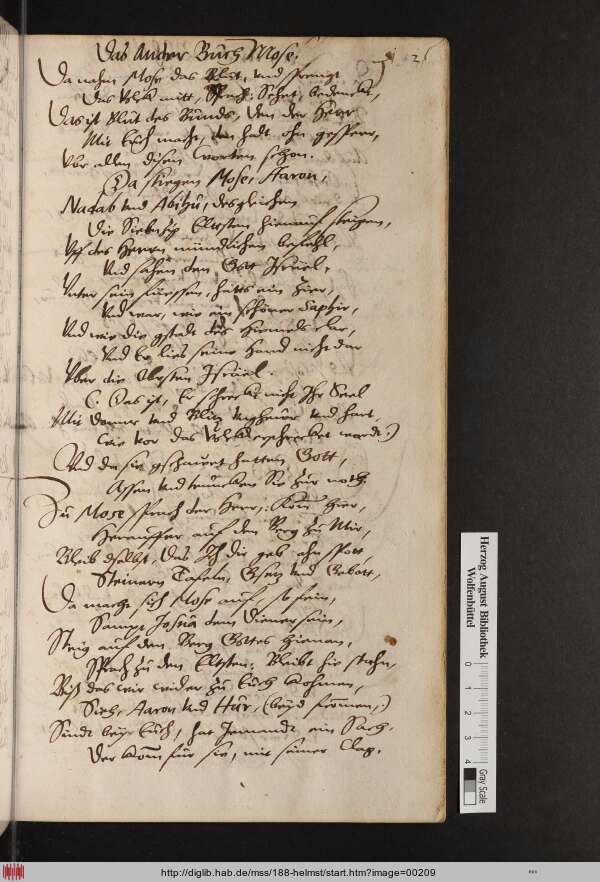 Das Ander Buch Mose.
Da nahm Mose das Blut, und sprengt
Das Volk mitt, Sprach: Sehet, bedencket,
Das ist Blut des Bunds, den der Herr
Mit Euch macht, den halt ohn gesperr,
Vbr allen disen worten schon.
Da stiegen Mose, Aaron,
Nadab und Abihu, desgleichen
Die Siebentzig Eltsten hienauf steigen,
Uff des Herrn mündlichen befehl,
Und sahen den Gott Israel,
Unter sein füessen, hatts ein Zier,
Und war, wie ein schöner Saphir,
Und wie die gstadt des Himels clar,
Und Er lies seine Hand nicht dar
Uber die Obrsten Israel.
(Das ist, Er schreckt nicht Ihr Seel
Mit Donner und Blitz ungheür und hart,
wie vor das Volck erschrecket wardt.)
Und da sie gschauwet hatten Gott,
Assen und truncken Sie zur noth.
Zu Mose sprach der Herr: Kom hier,
Herauffer auf den Berg zu Mir,
Bleib dselbst, das Ich dir geb ohn Spott,
Steinern Tafeln, Gsetz und Gebott,
Da macht sich Mose auf, so fein,
Sampt Josua dem Diener sein,
Steig auf den Berg Gottes hienan,
Sprach zu den Eltsten: Bleibt hie stahn,
Biß das wir wider zu Euch kohmen,
Sieh, Aaron und Hur, (beyd frommen,)
Sindt bey Euch, hat Jemandt ein Sach,
Der kom für sie, mit seiner Clag.
Herzog August Bibliothek
Wolfenbüttel
0 1 2 3 4
Gray Scale
http://diglib.hab.de/mss/188-helmst/start.htm?image=00209